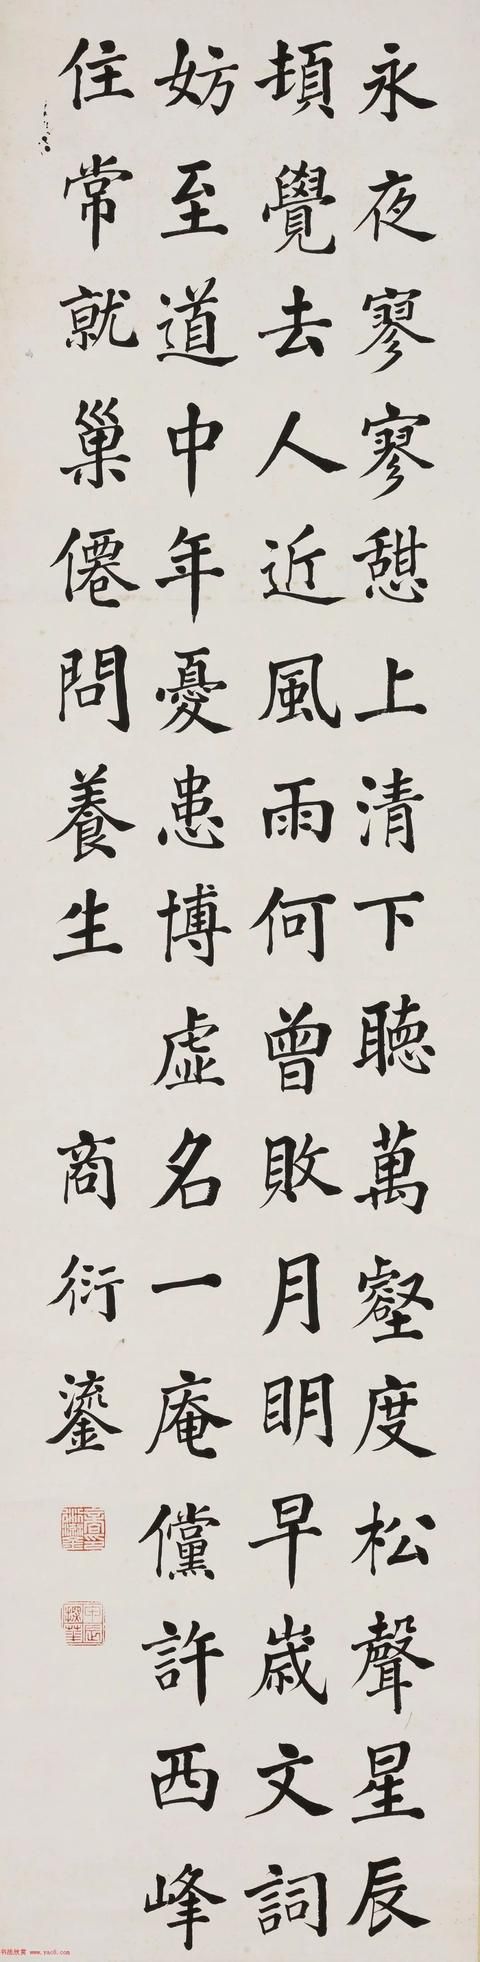 永夜寥寥憇上清下聽萬壑度松聲星辰
頓覺去人近風雨何曾敗月眀早歲文詞
妨至道中年憂患博虛名一庵儻許西峰
住常就巢僊問養生
商衍鎏
甲辰探花
书法欣赏 www.yac8.com